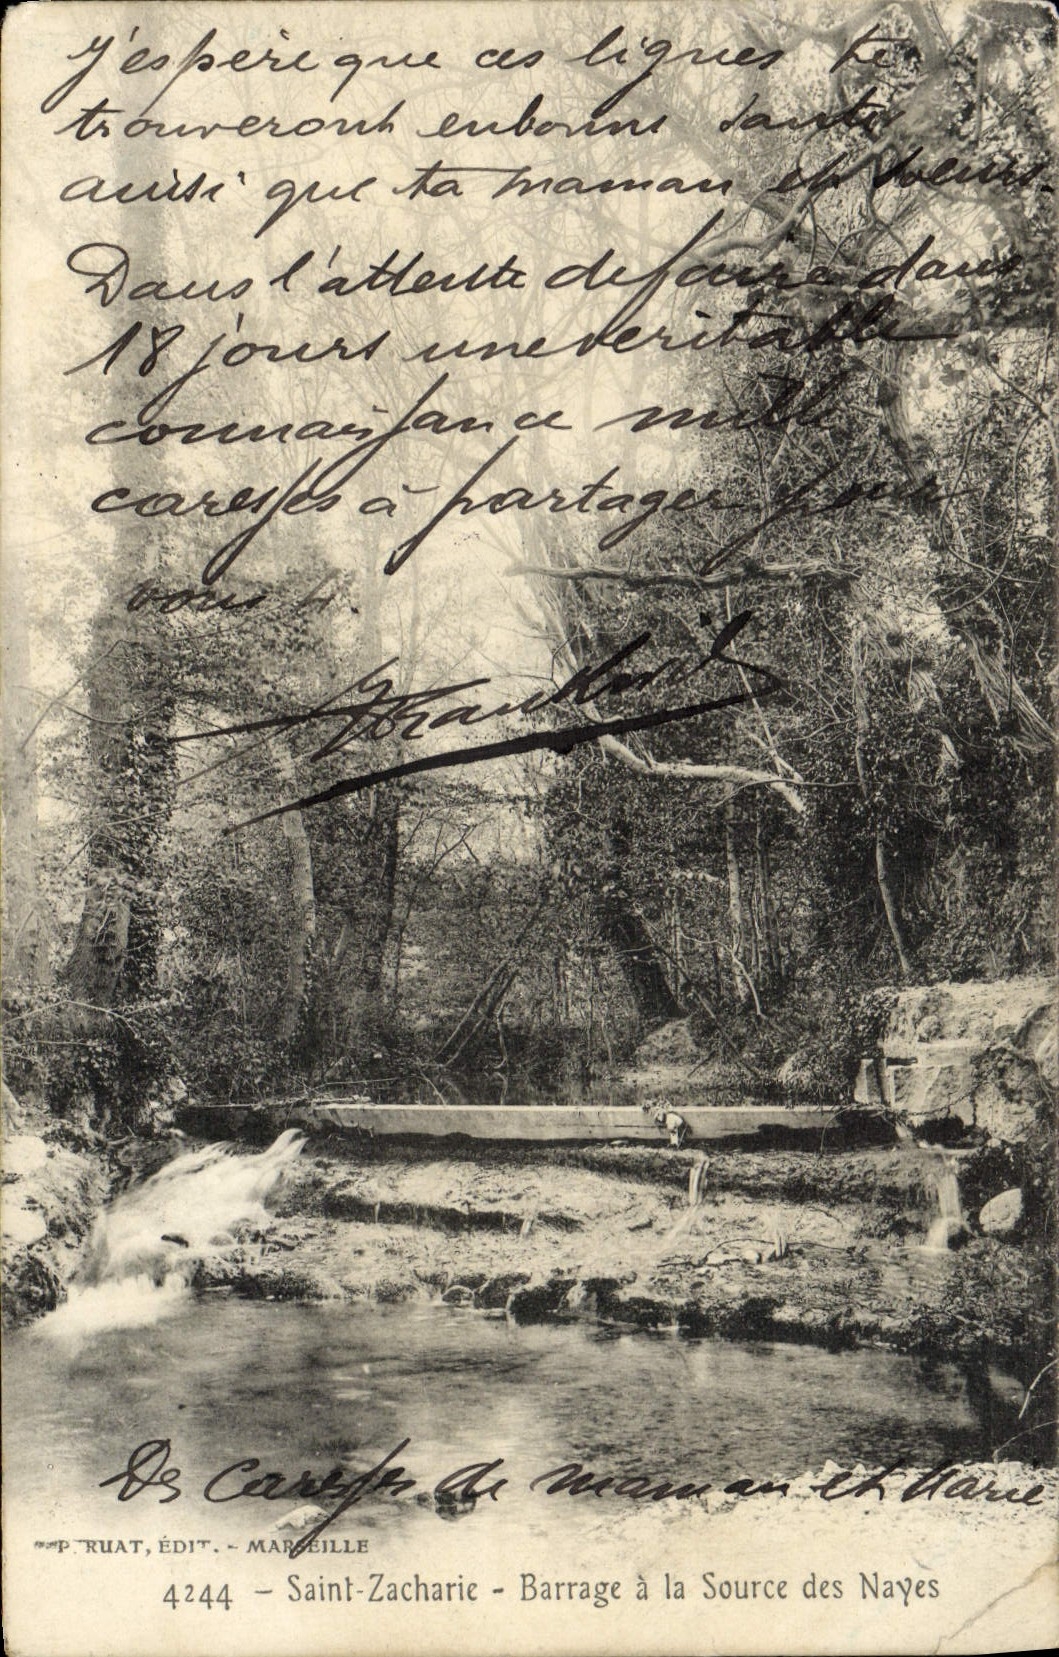 J'espère que ces lignes te
trouveront en bonne santé
ainsi que ta maman et soeurs.
Dans l'attente de faire dans
18 jours une veritable
connaissance mille
caresses à partager pour
vous 4.
Des Caresses de maman et Marie
P. RUAT, ÉDIT. - MARSEILLE
4244 - Saint-Zacharie - Barrage à la Source des Nayes